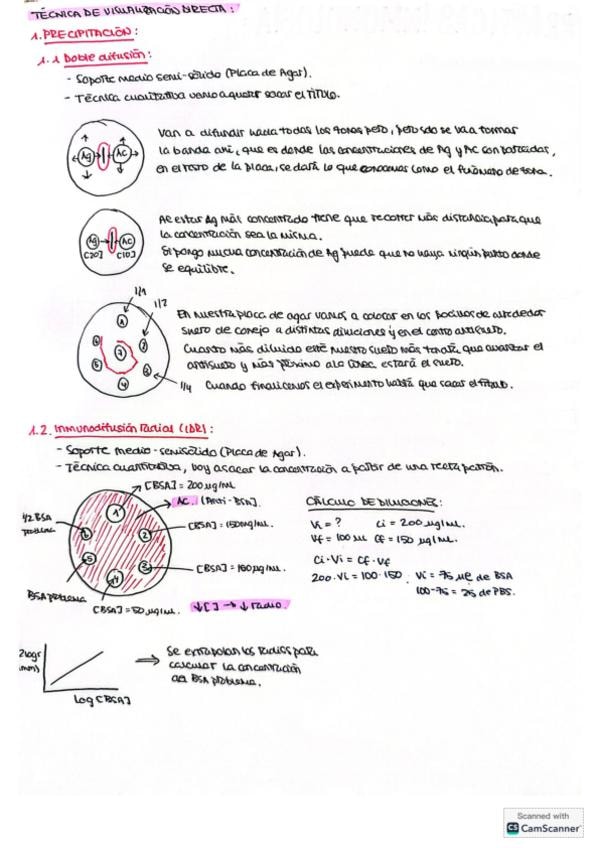 TÉCNICA DE VISUALIZACIÓN DIRECTA:
1. PRECIPITACIÓN:
1.1 Doble difusión:
- Soporte medio semi-sólido (Placa de Agar).
- Técnica cualitativa vamos a querer sacar el título.
Van a difundir hacia todos los lados pero, solo se va a formar
la banda ahí, que es donde las concentraciones de Ag y AC son parecidas,
en el resto de la placa, se dará lo que conocemos como el fenómeno de zona.
Ag
AC
Al estar Ag más concentrado tiene que recorrer más distancia para que
la concentración sea la misma.
Si pongo mucha concentración de Ag puede que no haya ningún punto donde
se equilibre.
Ag
AC
[20]
[10]
1/1
1/2
1/4
1
2
3
4
5
6
7
En nuestra placa de agar vamos a colocar en los pocillos de alrededor
suero de conejo a distintas diluciones y en el centro antisuero.
Cuanto más diluido esté nuestro suero más tendrá que avanzar el
antisuero y más próximo a la estará el suero.
Cuando finalicemos el experimento habrá que sacar el título.
1.2. Inmunodifusión radial (IDR):
- Soporte medio-semisólido (Placa de Agar).
- Técnica cuantitativa, voy a sacar la concentración a partir de una recta patrón.
[BSA] = 200 µg/mL
AC. (Anti-BSA).
1/2 BSA
problema
[BSA] = 150 mg/mL.
[BSA] = 100 µg/mL.
BSA problema
[BSA] = 50 µg/mL.
1
2
3
4
5
6
↓[ ] → ↓ radio.
CÁLCULO DE DILUCIONES:
Vi = ? Ci = 200 µg/mL.
Vf = 100 µL Cf = 150 µg/mL.
Ci · Vi = Cf · Vf
200 · Vi = 100 · 150 Vi = 75 µL de BSA
100-75 = 25 de PBS.
2 log r
(mm)
log [BSA]
Se extrapolan los radios para
calcular la concentración
del BSA problema.
Scanned with
CS CamScanner